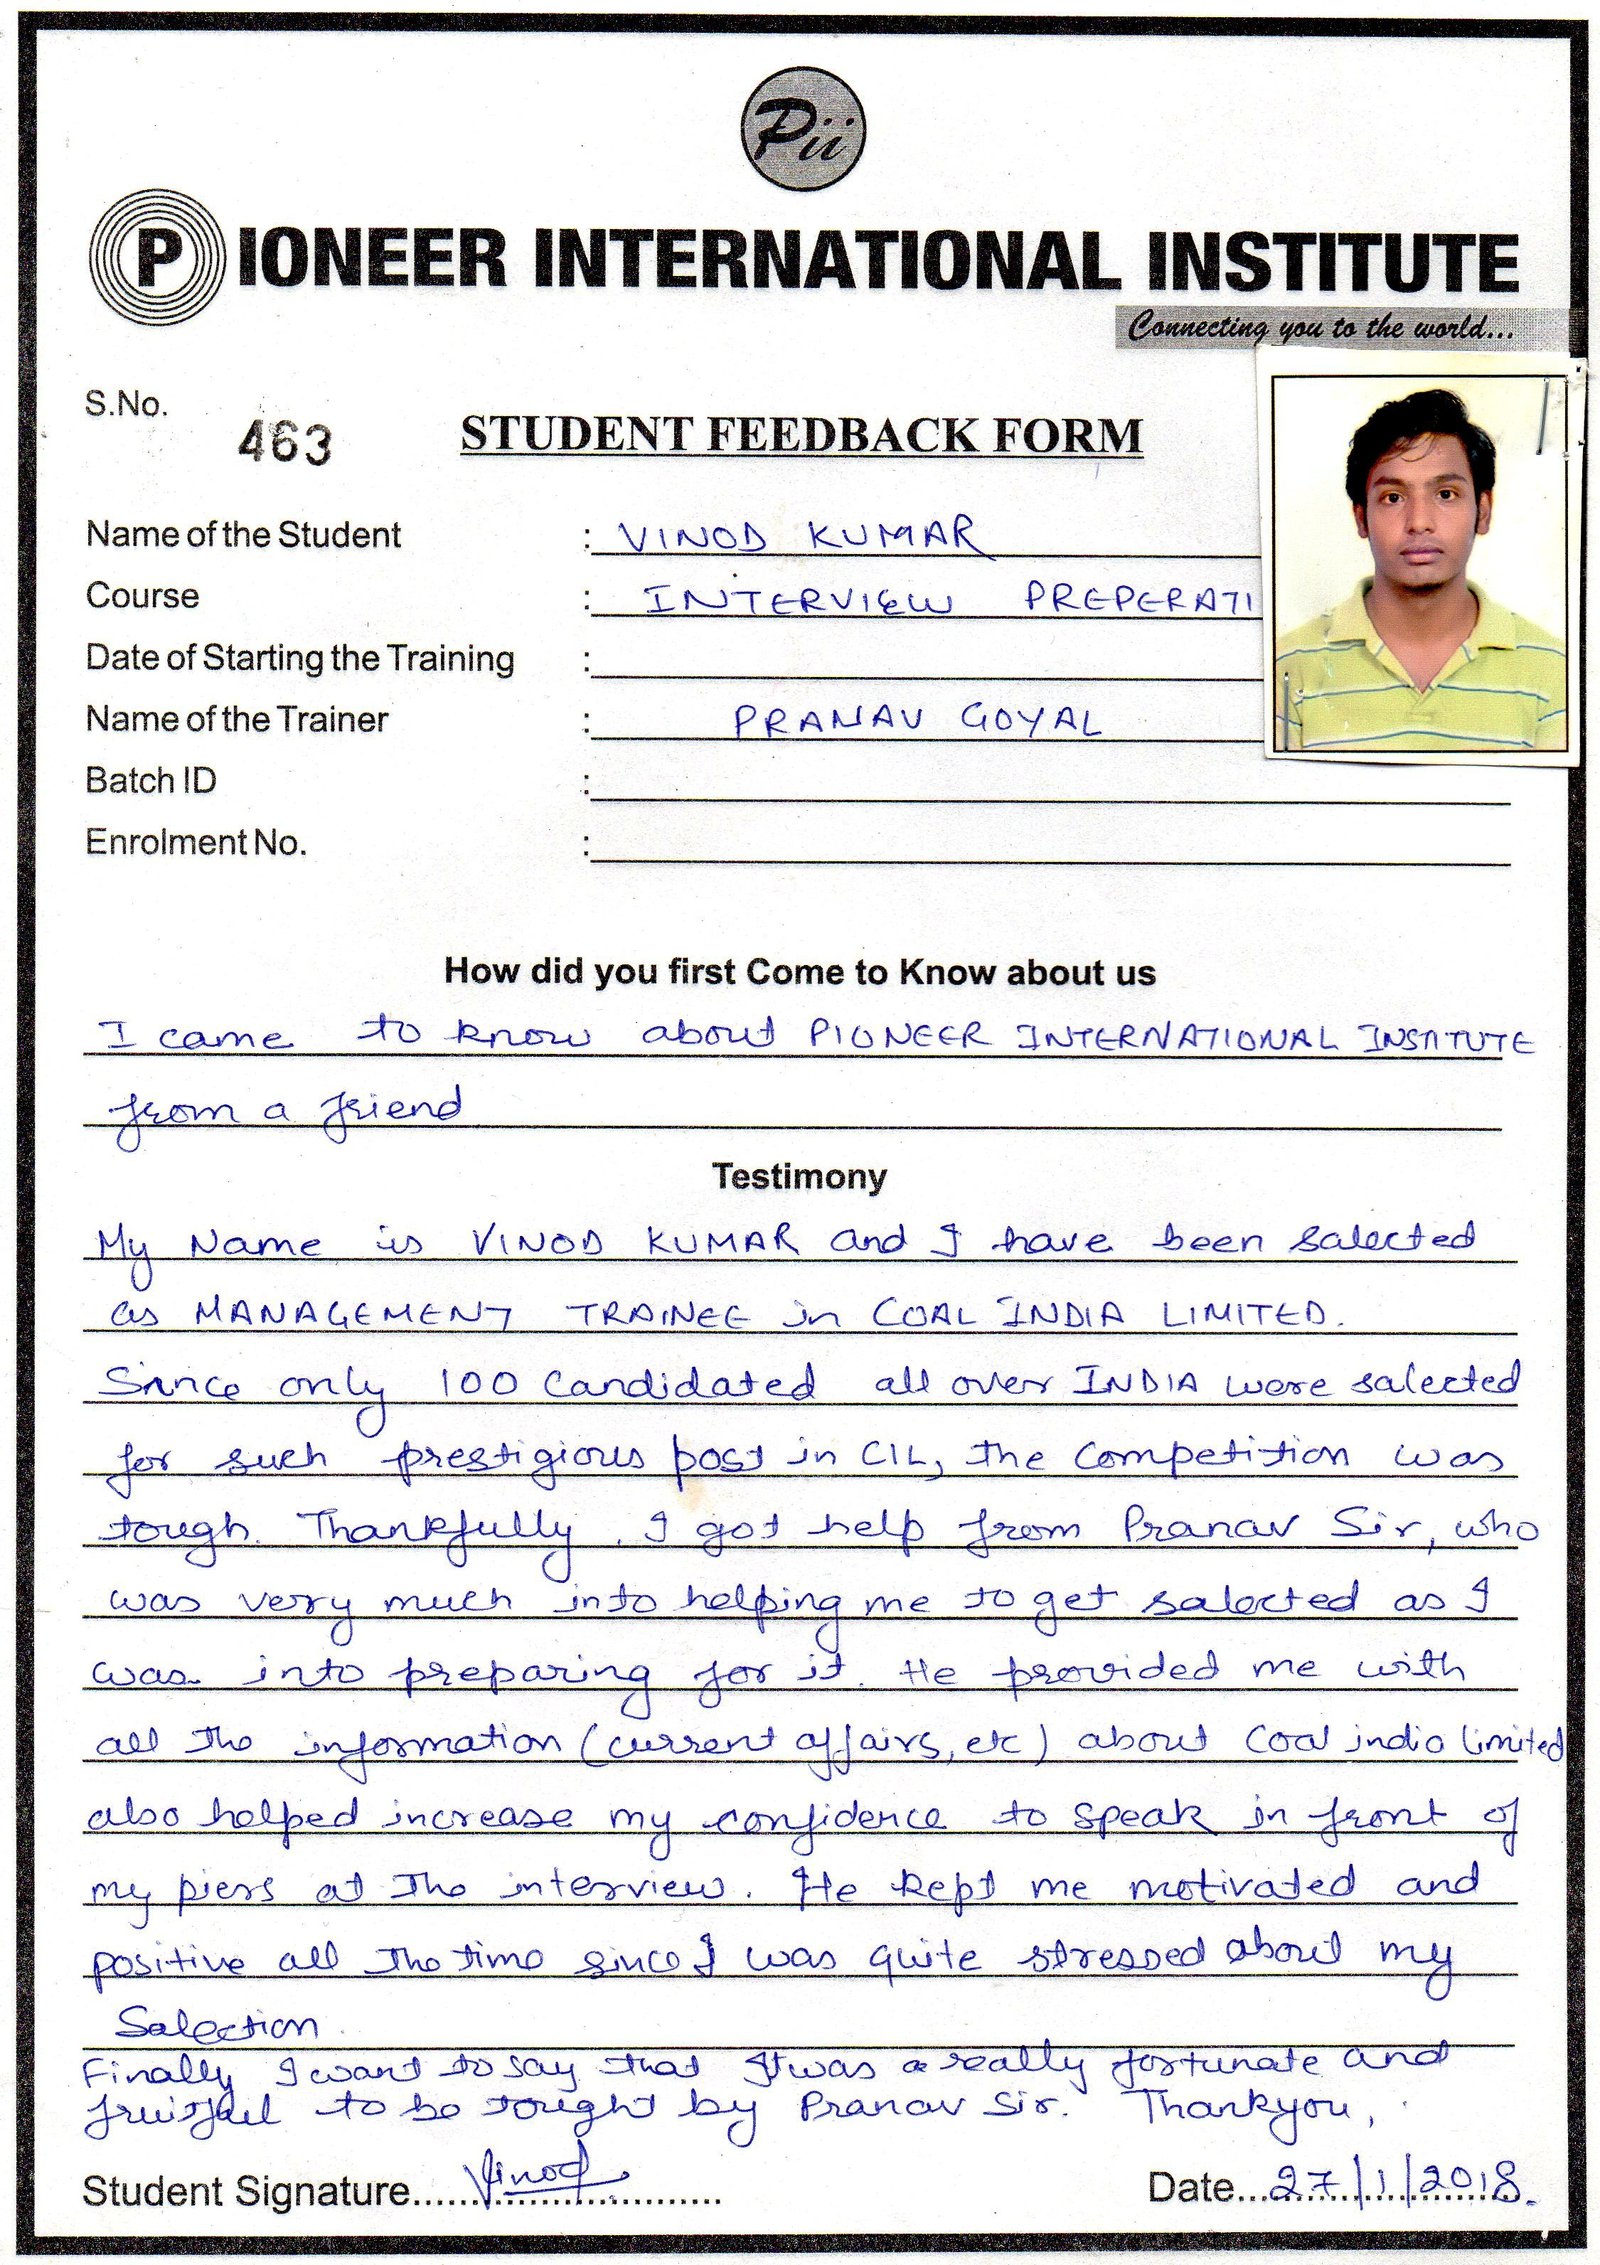 Pii
PIONEER INTERNATIONAL INSTITUTE
Connecting you to the world...
S.No. 463
STUDENT FEEDBACK FORM
Name of the Student : VINOD KUMAR
Course : INTERVIEW PREPERATI
Date of Starting the Training :
Name of the Trainer : PRANAV GOYAL
Batch ID :
Enrolment No. :
How did you first Come to Know about us
I came to know about PIONEER INTERNATIONAL INSTITUTE
from a friend
Testimony
My Name is VINOD KUMAR and I have been salected
as MANAGEMENT TRAINEE in COAL INDIA LIMITED.
Since only 100 Candidated all over INDIA were salected
for such prestigious post in CIL, the competition was
tough. Thankfully, I got help from Pranav Sir, who
was very much into helping me to get salected as I
was into preparing for it. He provided me with
all the information (current affairs, etc) about Coal india limited
also helped increase my confidence to speak in front of
my piers at the interview. He kept me motivated and
positive all the time since I was quite stressed about my
Salection.
Finally I want to say that It was a really fortunate and
fruitful to be tought by Pranav Sir. Thankyou,
Student Signature.....Vinod..........
Date...27/1/2018.